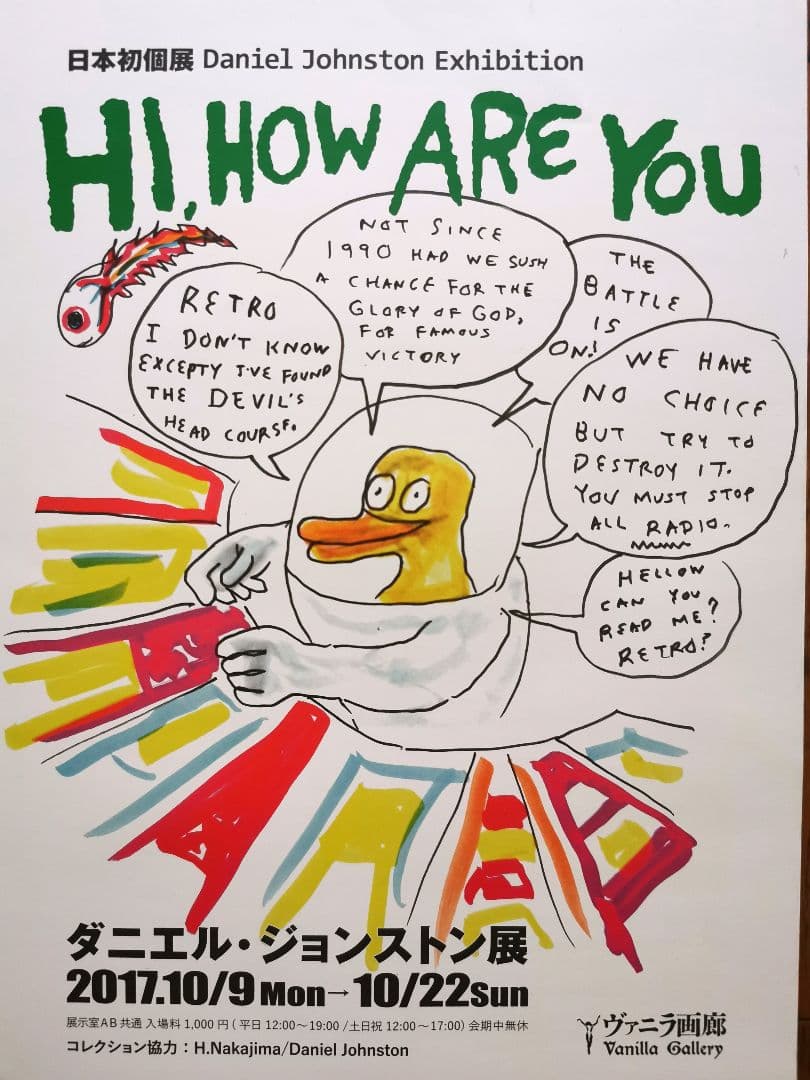 日本初個展 Daniel Johnston Exhibition
HI, HOW ARE YOU
RETRO
I DON'T KNOW
EXCEPTY I'VE FOUND
THE DEVIL'S
HEAD COURSE.
NOT SINCE
1990 HAD WE SUSH
A CHANCE FOR THE
GLORY OF GOD,
FOR FAMOUS
VICTORY
THE
BATTLE
IS
ON!
WE HAVE
NO CHOICE
BUT TRY TO
DESTROY IT.
YOU MUST STOP
ALL RADIO.
HELLOW
CAN YOU
READ ME?
RETRO?
ダニエル・ジョンストン展
2017.10/9 Mon→10/22 Sun
展示室AB共通 入場料 1,000 円 ( 平日 12:00〜19:00 / 土日祝 12:00〜17:00) 会期中無休
コレクション協力：H.Nakajima/Daniel Johnston
ヴァニラ画廊
Vanilla Gallery